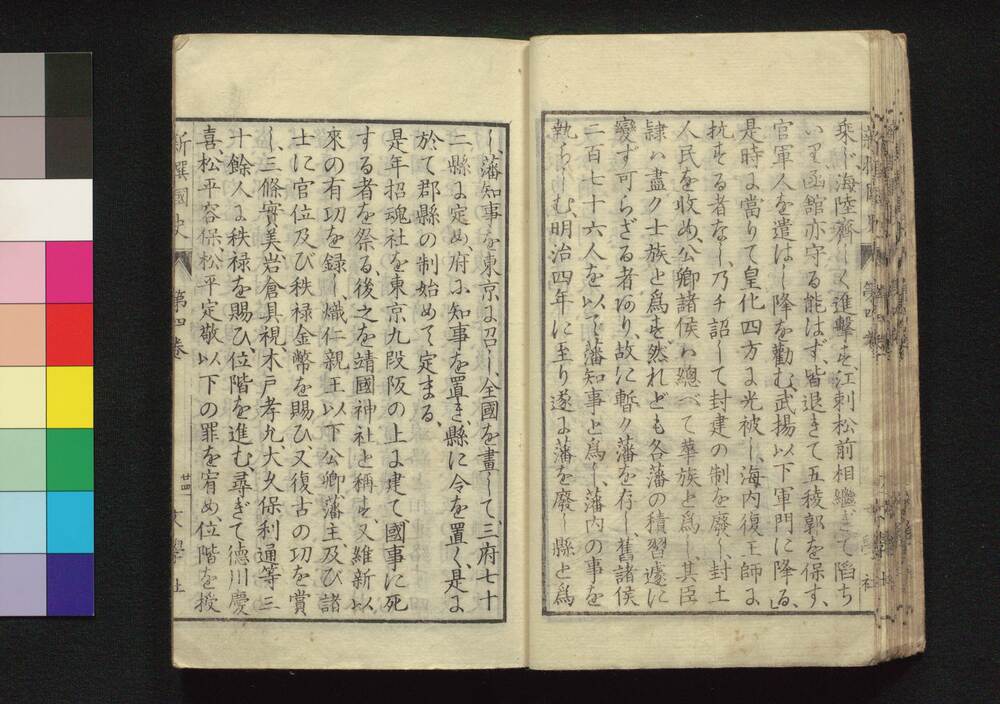 乘じ海陸齊しく進撃す、江刺松前相繼ぎて陷ち
いり函館亦守る能はず、皆退きて五稜郭を保す、
官軍人を遣はし降を勸む、武揚以下軍門に降る、」
是時に當りて皇化四方に光被し、海内復王師に
抗する者なし、乃チ詔して封建の制を廢し、封土
人民を收め、公卿諸侯ハ總べて華族と爲し其臣
隷ハ盡ク士族と爲す、然れども各藩の積習遽に
變ず可らざる者あり、故に暫ク藩を存し、舊諸侯
二百七十六人を以て藩知事と爲し、藩内の事を
執らしむ、明治四年に至り遂に藩を廢し縣と爲
し、藩知事を東京に召し、全國を畫して、三府七十
二縣に定め、府に知事を置き、縣に令を置く、是に
於て郡縣の制始めて定まる、
是年招魂社を東京九段阪の上に建て國事に死
する者を祭る、後之を靖國神社と稱す、又維新以
來の有功を録し、熾仁親王以下公卿藩主及び諸
士に官位及び秩禄金幣を賜ひ又復古の功を賞
し、三條實美岩倉具視木戸孝允大久保利通等三
十餘人に秩禄を賜ひ位階を進む、尋ぎて德川慶
喜、松平容保、松平定敬以下の罪を宥め位階を授
新撰國史 第四卷 廿四 文學社